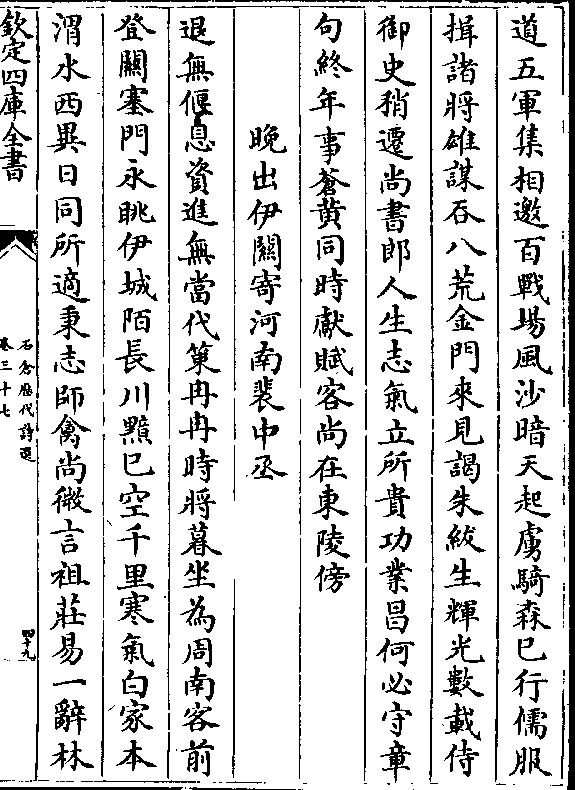 道五軍集相邀百戰場風沙暗天起虜騎森已行儒服
揖諸將雄謀吞八荒金門來見謁朱紱生輝光數載侍
御史稍遷尚書郎人生志氣立所貴功業昌何必守章
句終年事蒼黄同時獻賦客尚在東陵傍
晚出伊闕寄河南裴中丞
退無偃息資進無當代策冉冉時將暮坐為周南客前
登闕塞門永眺伊城陌長川黯已空千里寒氣白家本
渭水西異日同所適秉志師禽尚微言祖莊易一辭林
欽定四庫全書
石倉歴代詩選
卷三十七
四十九